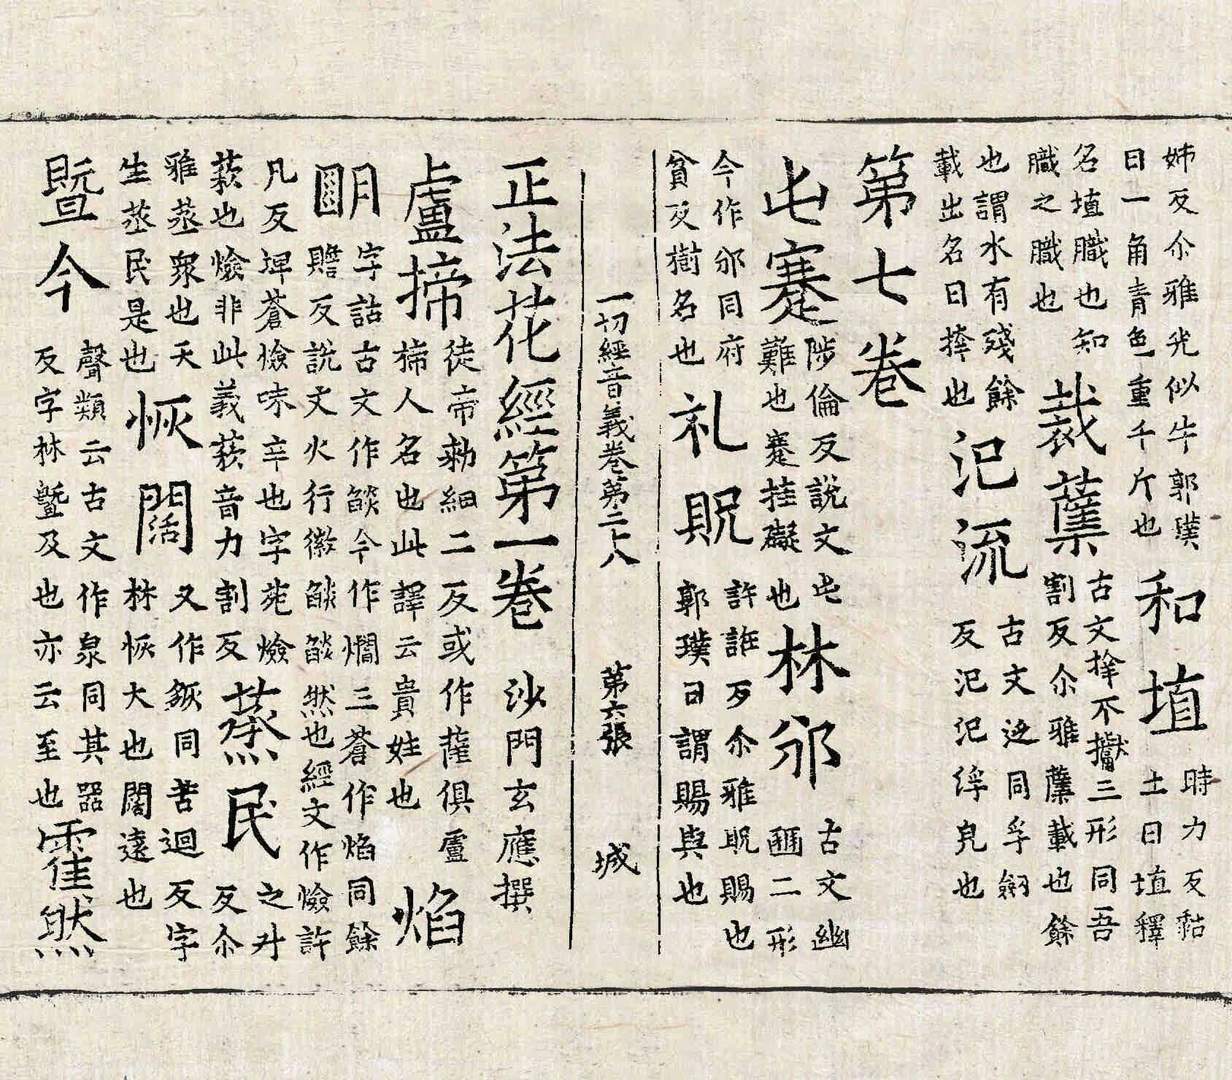 姊反尒雅光似牛郭璞
曰一角青色重千斤也
和埴
時力反黏
土曰埴釋
名埴職也知
職之職也
裁蘗
古文㭕不𣡌三形同吾
割反尒雅蘗載也餘
也謂水有殘餘
載出名曰㭕也
汜流
古文泛同孚劒
反汜汜浮皃也
第七卷
屯蹇
陟倫反說文屯
難也蹇挂礙也
林邠
古文幽
豳二形
今作邠同府
貧反樹名也
礼貺
許誑反尒雅貺賜也
郭璞曰謂賜與也
一切經音義卷第二十八 第六張 城
正法花經第一卷 沙門玄應撰
盧揥
徒帝勑細二反或作薩俱盧
揥人名也此譯云貴姓也
焰
明
字詁古文作燄今作爓三蒼作焰同餘
贍反說文火行微燄燄然也經文作憸許
凡反埤蒼憸味辛也字苑憸
䓶也憸非此義䓶音力割反
蒸民
之升
反尒
雅蒸衆也天
生蒸民是也
恢闊
又作㤥同苦迴反字
林恢大也闊遠也
曁今
聲類云古文作臮同其器
反字林曁及也亦云至也
霍然